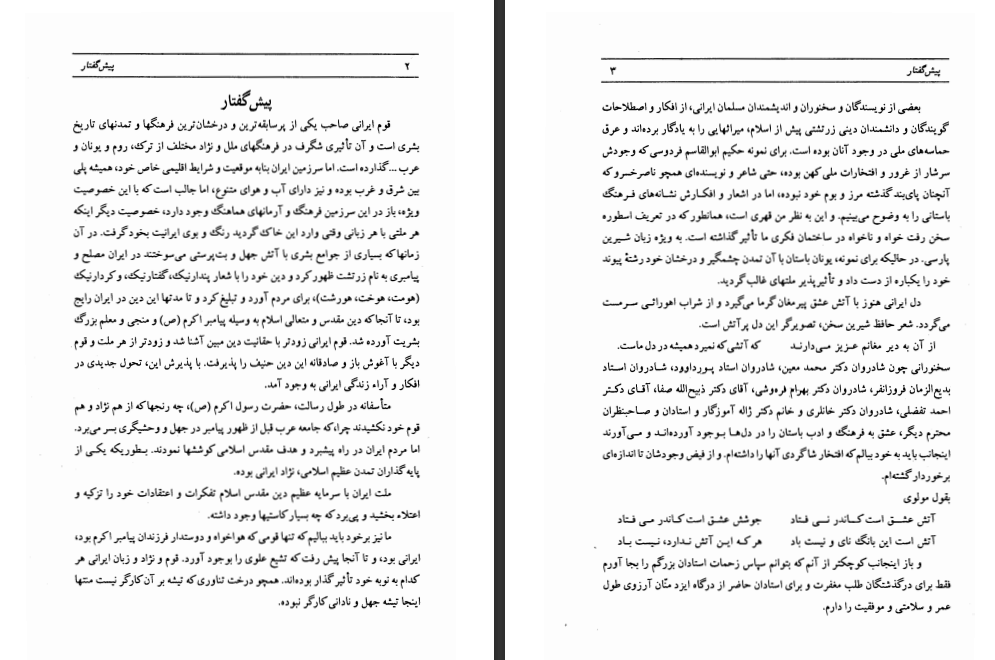 ۲ پیش‌گفتار
پیش‌گفتار
قوم ایرانی صاحب یکی از پرسابقه‌ترین و درخشان‌ترین فرهنگها و تمدنهای تاریخ
بشری است و آن تأثیری شگرف در فرهنگهای ملل و نژاد مختلف از ترک، روم و یونان و
عرب ... گذارده است. اما سرزمین ایران بنابه موقعیت و شرایط اقلیمی خاص خود، همیشه پلی
بین شرق و غرب بوده و نیز دارای آب و هوای متنوع، اما جالب است که با این خصوصیت
ویژه، باز در این سرزمین فرهنگ و آرمانهای هماهنگ وجود دارد، خصوصیت دیگر اینکه
هر ملتی با هر زبانی وقتی وارد این خاک گردید رنگ و بوی ایرانیت بخود گرفت. در آن
زمانها که بسیاری از جوامع بشری با آتش جهل و بت‌پرستی می‌سوختند در ایران مصلح و
پیامبری به نام زرتشت ظهور کرد و دین خود را با شعار پندارنیک، گفتارنیک، و کردارنیک
(هومت، هوخت، هورشت)، برای مردم آورد و تبلیغ کرد و تا مدتها این دین در ایران رایج
بود، تا آنجا که دین مقدس و متعالی اسلام به وسیله پیامبر اکرم (ص) و منجی و معلم بزرگ
بشریت آورده شد. قوم ایرانی زودتر با حقانیت دین مبین آشنا شد و زودتر از هر ملت و قوم
دیگر با آغوش باز و صادقانه این دین حنیف را پذیرفت. با پذیرش این، تحول جدیدی در
افکار و آراء زندگی ایرانی به وجود آمد.
متأسفانه در طول رسالت، حضرت رسول اکرم (ص)، چه رنجها که از هم نژاد و هم
قوم خود نکشیدند چرا، که جامعه عرب قبل از ظهور پیامبر در جهل و وحشیگری بسر می‌برد.
اما مردم ایران در راه پیشبرد و هدف مقدس اسلامی کوششها نمودند. بطوریکه یکی از
پایه گذاران تمدن عظیم اسلامی، نژاد ایرانی بوده.
ملت ایران با سرمایه عظیم دین مقدس اسلام تفکرات و اعتقادات خود را تزکیه و
اعتلاء بخشید و پی‌برد که چه بسیار کاستیها وجود داشته.
ما نیز برخود باید ببالیم که تنها قومی که هواخواه و دوستدار فرزندان پیامبر اکرم بود،
ایرانی بود، و تا آنجا پیش رفت که تشیع علوی را بوجود آورد. قوم و نژاد و زبان ایرانی هر
کدام به نوبه خود تأثیر گذار بوده‌اند. همچو درخت تناوری که تیشه بر آن کارگر نیست منتها
اینجا تیشه جهل و نادانی کارگر نبوده.
پیش‌گفتار ۳
بعضی از نویسندگان و سخنوران و اندیشمندان مسلمان ایرانی، از افکار و اصطلاحات
گویندگان و دانشمندان دینی زرتشتی پیش از اسلام، میراثهایی را به یادگار برده‌اند و عرق
حماسه‌های ملی در وجود آنان بوده است. برای نمونه حکیم ابوالقاسم فردوسی که وجودش
سرشار از غرور و افتخارات ملی کهن بوده، حتی شاعر و نویسنده‌ای همچو ناصرخسرو که
آنچنان پای‌بند گذشته مرز و بوم خود نبوده، اما در اشعار و افکارش نشانه‌های فرهنگ
باستانی را به وضوح می‌بینیم. و این به نظر من قهری است، همانطور که در تعریف اسطوره
سخن رفت خواه و ناخواه در ساختمان فکری ما تأثیر گذاشته است. به ویژه زبان شیرین
پارسی. در حالیکه برای نمونه، یونان باستان با آن تمدن چشمگیر و درخشان خود رشتهٔ پیوند
خود را یکباره از دست داد و تأثیر پذیر ملتهای غالب گردید.
دل ایرانی هنوز با آتش عشق پیرمغان گرما می‌گیرد و از شراب اهورائی سرمست
می‌گردد. شعر حافظ شیرین سخن، تصویرگر این دل پرآتش است.
از آن به دیر مغانم عزیز می‌دارند که آتشی که نمیرد همیشه در دل ماست.
سخنورانی چون شادروان دکتر محمد معین، شادروان استاد پورداوود، شادروان استاد
بدیع‌الزمان فروزانفر، شادروان دکتر بهرام فره‌وشی، آقای دکتر ذبیح‌الله صفا، آقای دکتر
احمد تفضلی، شادروان دکتر خانلری و خانم دکتر ژاله آموزگار و استادان و صاحبنظران
محترم دیگر، عشق به فرهنگ و ادب باستان را در دل‌ها بوجود آورده‌اند و می‌آورند
اینجانب باید به خود ببالم که افتخار شاگردی آنها را داشته‌ام. و از فیض وجودشان تا اندازه‌ای
برخوردار گشته‌ام.
بقول مولوی
آتش عشق است کاندر نی فتاد جوشش عشق است کاندر می فتاد
آتش است این بانگ نای و نیست باد هر که این آتش ندارد، نیست باد
و باز اینجانب کوچکتر از آنم که بتوانم سپاس زحمات استادان بزرگم را بجا آورم
فقط برای درگذشتگان طلب مغفرت و برای استادان حاضر از درگاه ایزد منّان آرزوی طول
عمر و سلامتی و موفقیت را دارم.